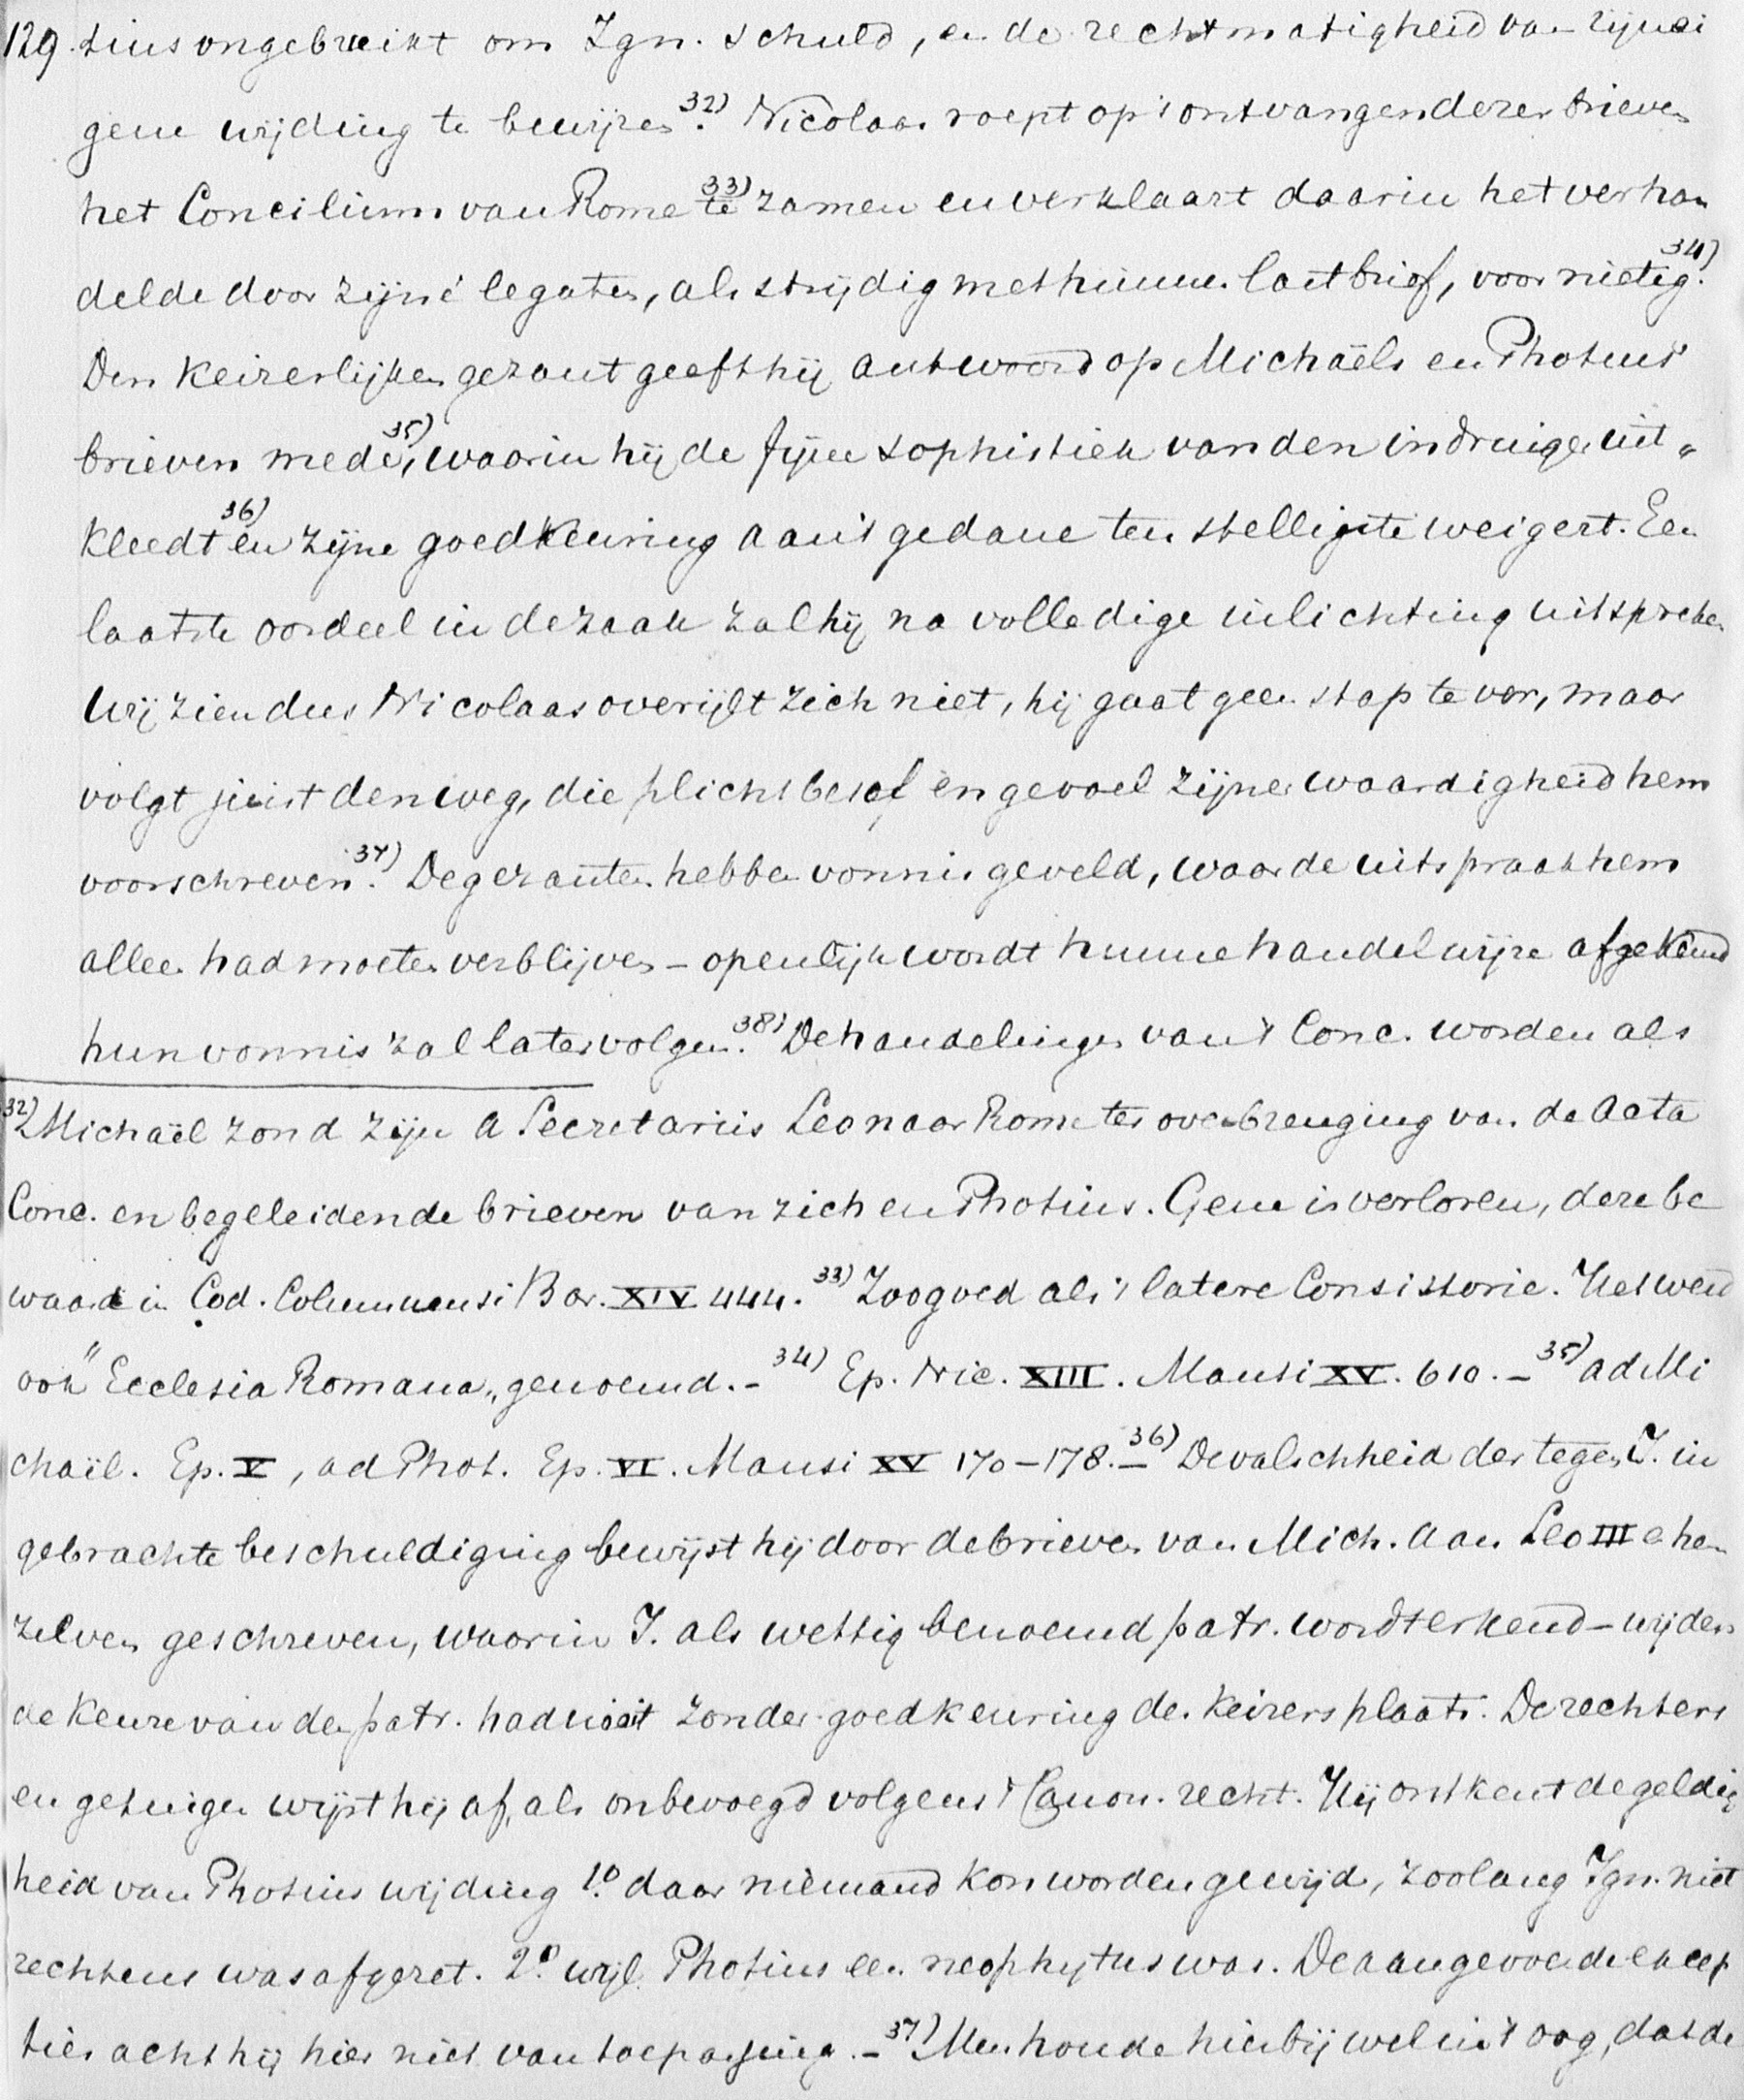 129. tius ongebreikt om Ign. schuld, en de rechtmatigheid van zijn ei
gene wijding te bewijzen.32) Nicolaas roept op 't ontvangen dezer brieven
het Concilium van Rome te33) zamen en verklaart daarin het verhan
delde door zijne legaten, als strijdig met hunnen lastbrief, voor nietig.34)
Den keizerlijken gezant geeft hij antwoord op Michaëls en Photius'
brieven mede,35) waarin hij de fijne sophistiek van den indringer uit„
kleedt36) en zijne goedkeuring aan 't gedane ten stelligste weigert. Een
laatste oordeel in de zaak zal hij na volledige inlichting uitspreken
Wij zien dus Nicolaas overijlt zich niet, hij gaat geen stap te ver, maar
volgt juist den weg, die plichtbesef en gevoel zijner waardigheid hem
voorschreven.37) De gezanten hebben vonnis geveld, waar de uitspraak hem
alleen had moeten verblijven – openlijk wordt hunne handelwijze afgekeurd
hun vonnis zal later volgen.38) De handelingen van 't Conc. worden als
32) Michaël zond zijn a Secretariis Leo naar Rome ter overbrenging van de Acta
Conc. en begeleidende brieven van zich en Photius. Gene is verloren, deze be
waard in Cod. Columnensi Bar. XIV 444. 33) Zoogoed als 't latere Consistorie. Het werd
ook "Ecclesia Romana„ genoemd. – 34) Ep. Nic. XIII. Mansi XV. 610. – 35) ad Mi
chaël. Ep. V, ad Phot. Ep. VI. Mansi XV 170–178. – 36) De valschheid der tegen I. in
gebrachte beschuldiging bewijst hij door de brieven van Mich. aan Leo III e hem
zelven geschreven, waarin I. als wettig benoemd patr. wordt erkend – wijders
de keuze van den patr. had nooit zonder goedkeuring des keizers plaats. De rechters
en getuigen wijst hij af, als onbevoegd volgens 't Canon. recht. Hij ontkent de geldig
heid van Photius wijding 1.o daar niemand kon worden gewijd, zoolang Ign. niet
rechtens was afgezet. 2.o wijl Photius een neophytus was. De aangevoerde excep
ties acht hij hier niet van toepassing. – 37) Men houde hierbij wel in 't oog, dat de